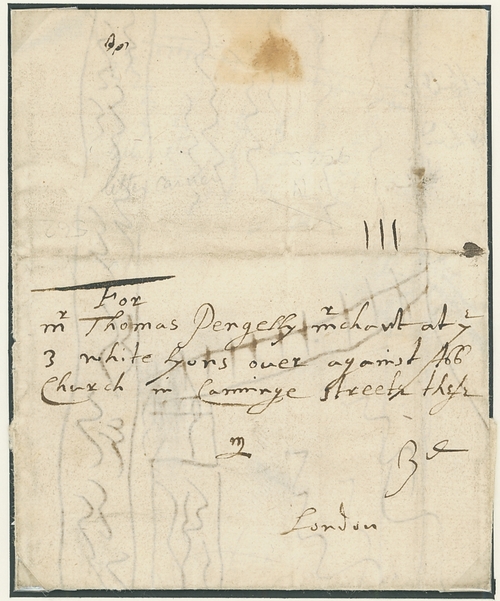 III
For
mr Thomas Pengelly mrchant at ye
3 white Lyons over against Abb
Church in Canninge Streete these
3d
London